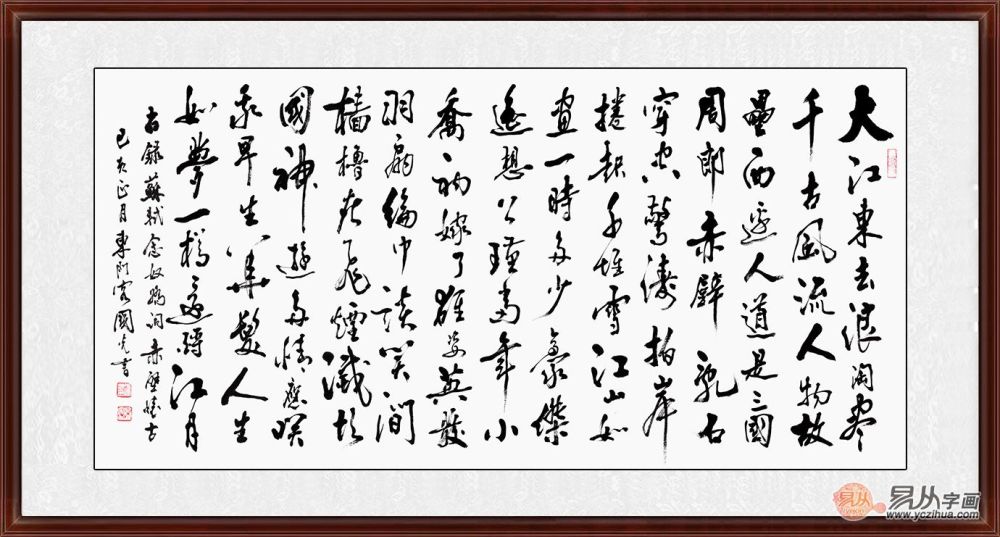 大江東去浪淘盡
千古風流人物故
壘西邊人道是三國
周郎赤壁亂石
穿空驚濤拍岸
捲起千堆雪江山如
畫一時多少豪傑
遙想公瑾當年小
喬初嫁了雄姿英發
羽扇綸巾談笑間
檣櫓灰飛煙滅故
國神遊多情應笑
我早生華髮人生
如夢一樽還酹江月
右錄蘇軾念奴嬌詞赤壁懷古
己亥正月國書
易从
易从字画
www.yczihua.com